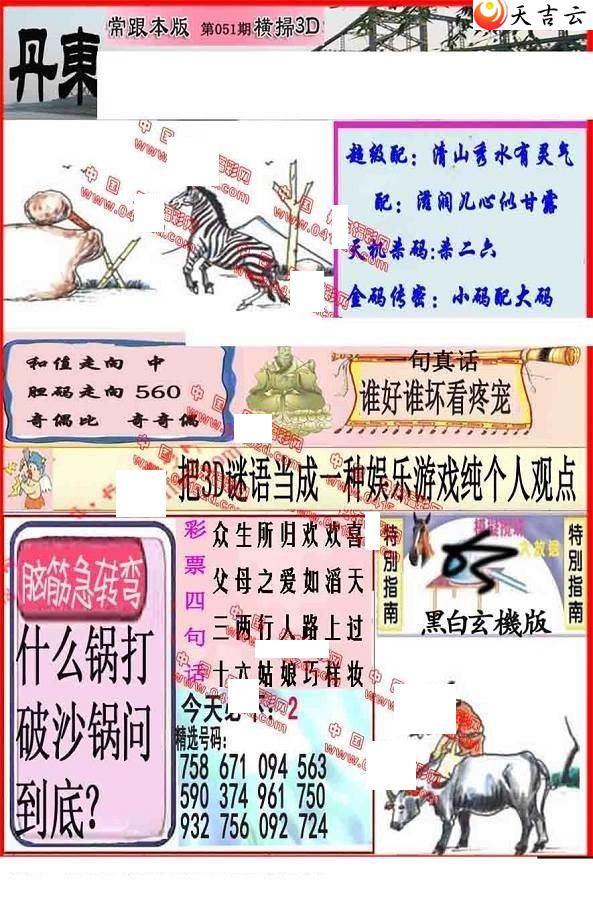 天吉云
常跟本版 第051期 横掃3D
丹東
超级配：清山秀水有灵气
配：滋润儿心似甘露
天机杀码:杀二六
金码传密：小码配大码
和值走向 中
胆码走向 560
奇偶比 奇奇偶
一句真话
谁好谁坏看疼宠
把3D谜语当成一种娱乐游戏纯个人观点
脑筋急转弯
什么锅打
破沙锅问
到底？
彩票四句话
众生所归欢欢喜
父母之爱如滔天
三两行人路上过
十六姑娘巧样妆
特别指南
特别指南
黑白玄機版
今天必下：2
精选号码:
758 671 094 563
590 374 961 750
932 756 092 724